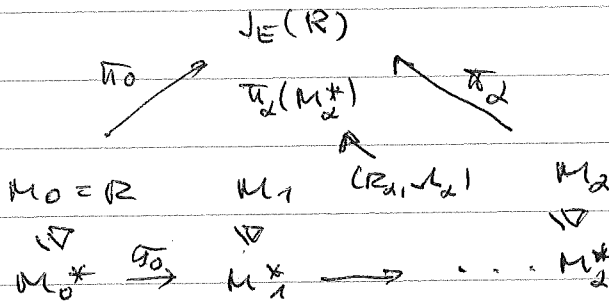 J_E(R)
π_0 π_α(M_α^*) π_α
M_0 = R M_1 (R_α, Λ_α) M_α
M_0^* σ_0 → M_1^* → . . . M_α^*